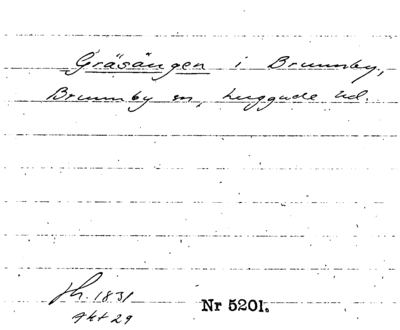 Gräsången i Brunnby,
Brunnby sn, Luggude hd.
1831
Akt 29
Nr 5201.